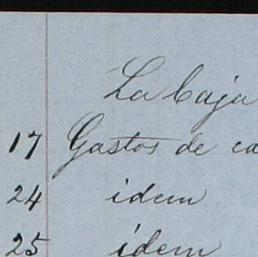 La baja
17 Gastos de
24 idem
25 idem